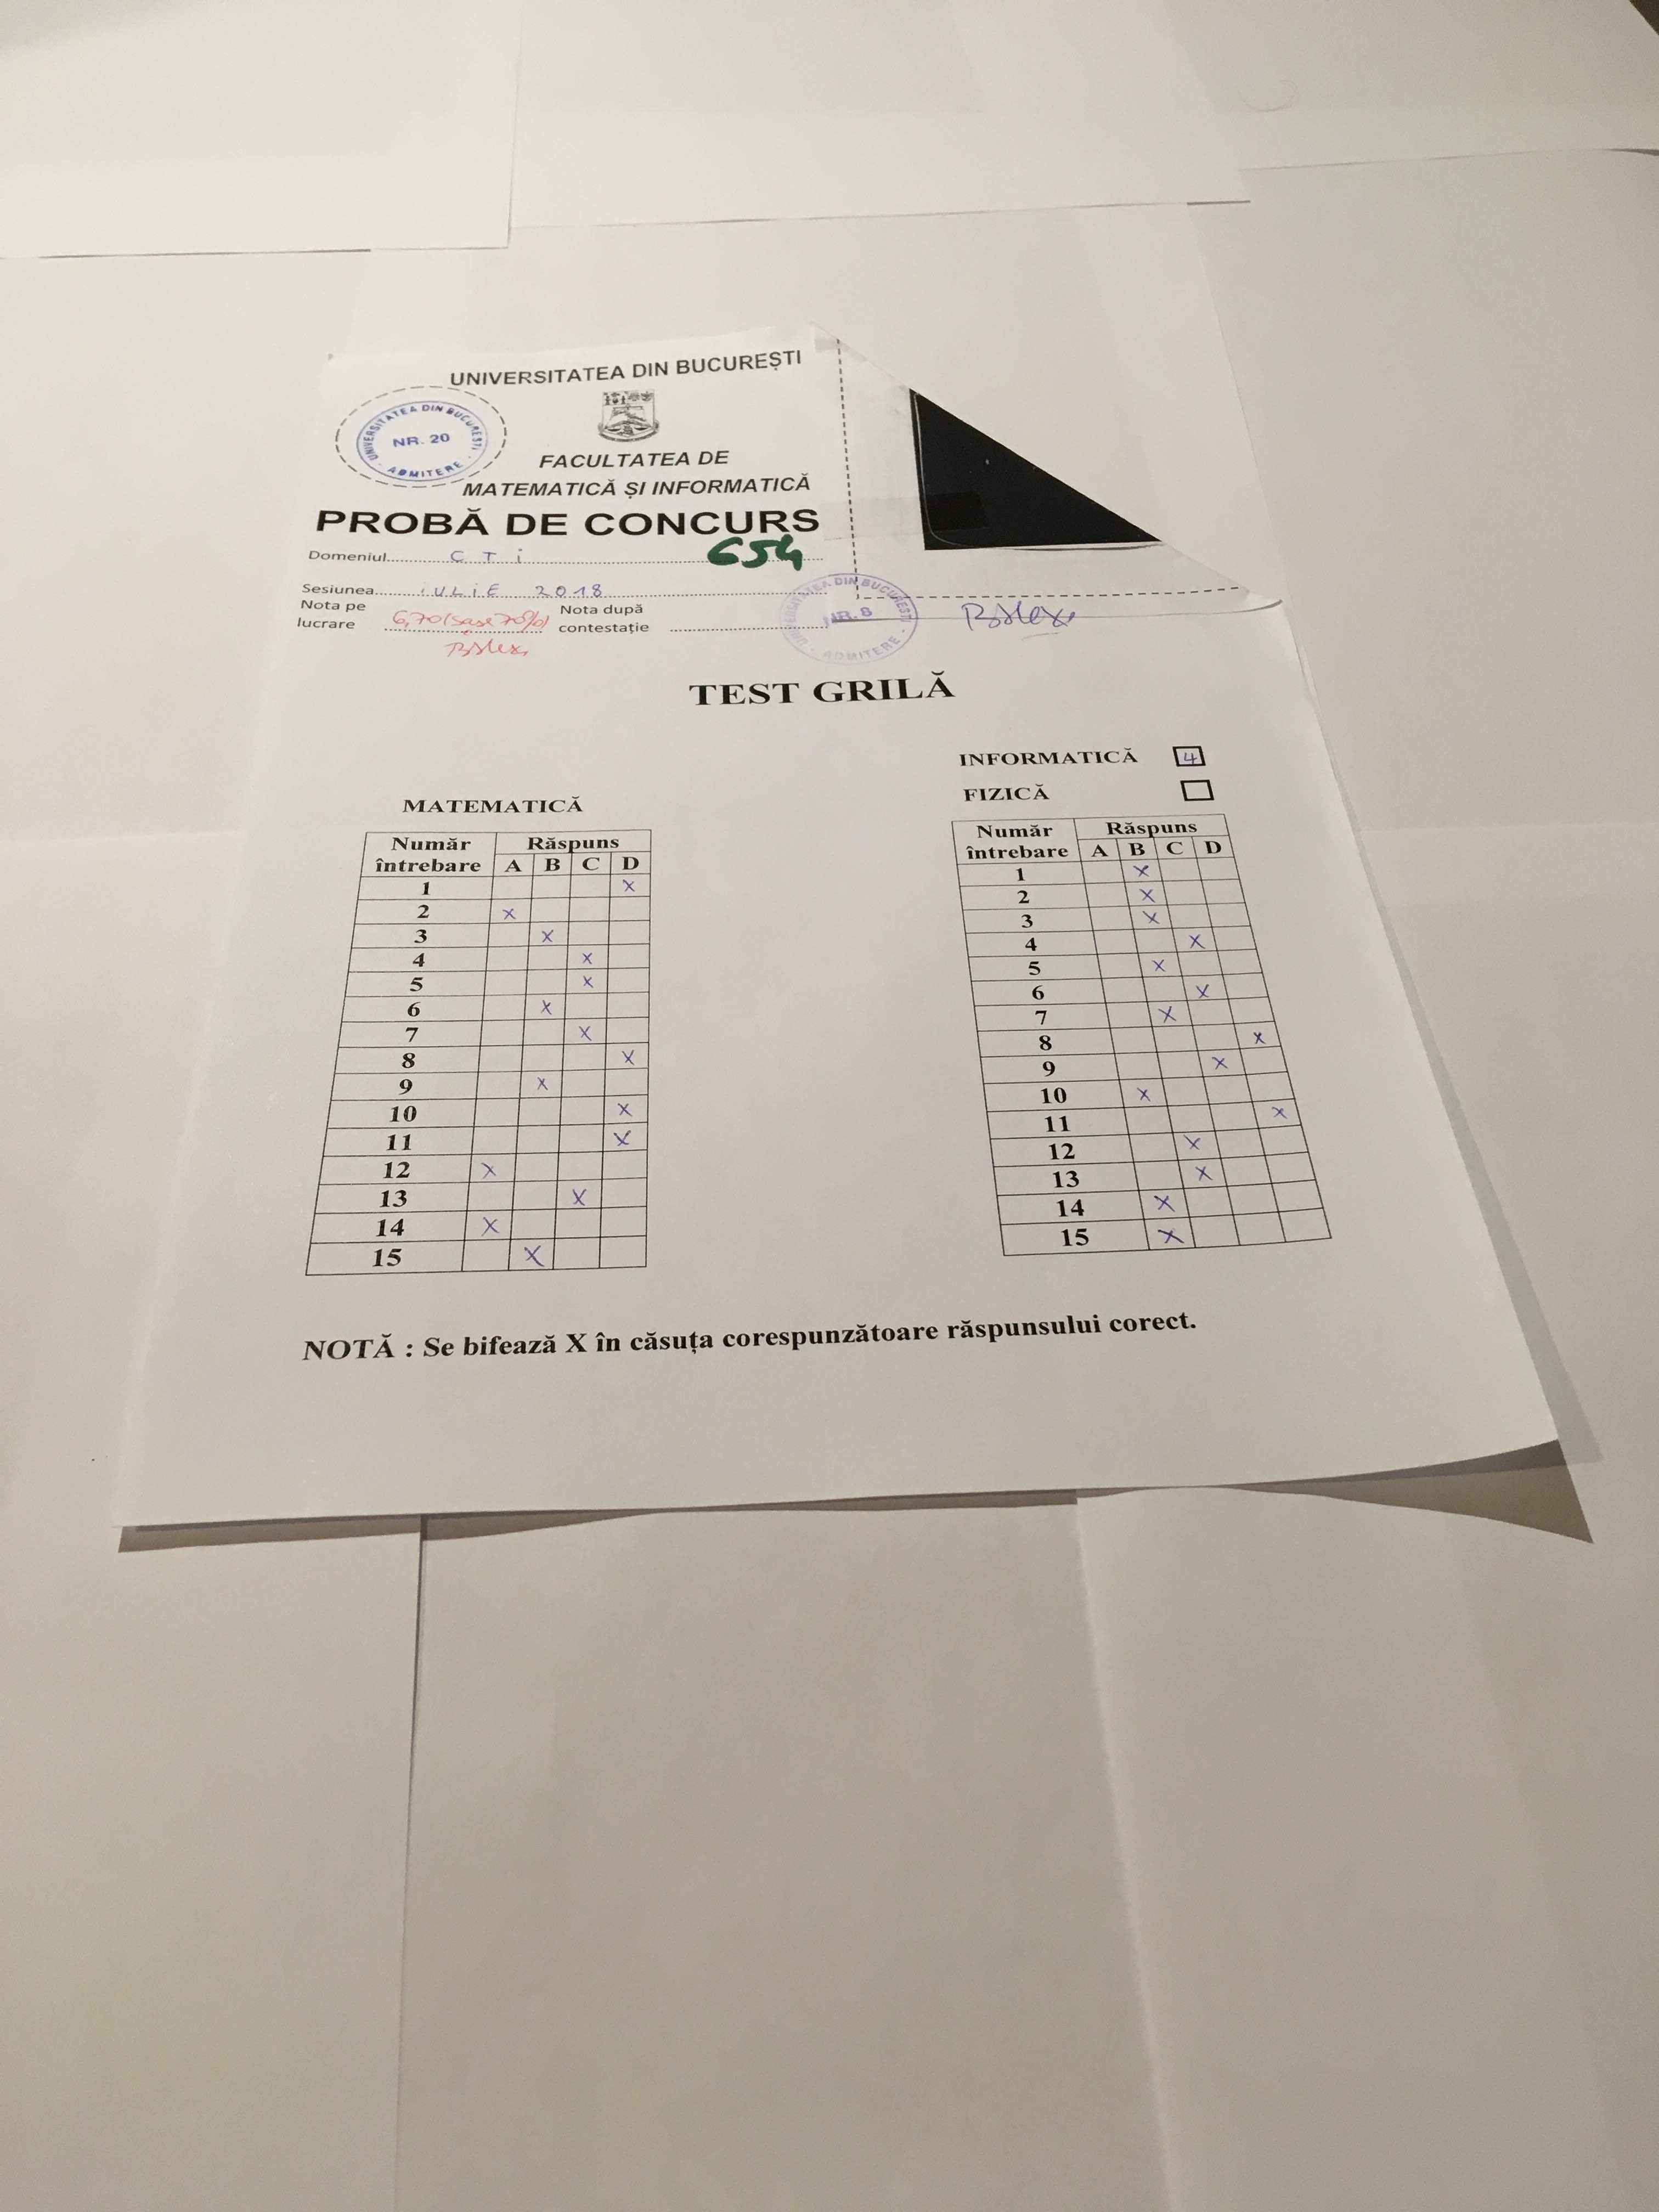 UNIVERSITATEA DIN BUCUREȘTI
UNIVERSITATEA DIN BUCUREȘTI
NR. 20
ADMITERE
FACULTATEA DE
MATEMATICĂ ȘI INFORMATICĂ
PROBĂ DE CONCURS
Domeniul CTi 654
Sesiunea iULiE 2018
Nota pe lucrare 6,70 (șase 70%) Nota după contestație
UNIVERSITATEA DIN BUCUREȘTI
NR. 8
ADMITERE
TEST GRILĂ
INFORMATICĂ 4
FIZICĂ
MATEMATICĂ
Număr întrebare Răspuns
A B C D
1 X
2 X
3 X
4 X
5 X
6 X
7 X
8 X
9 X
10 X
11 X
12 X
13 X
14 X
15 X
Număr întrebare Răspuns
A B C D
1 X
2 X
3 X
4 X
5 X
6 X
7 X
8 X
9 X
10 X
11 X
12 X
13 X
14 X
15 X
NOTĂ : Se bifează X în căsuța corespunzătoare răspunsului corect.